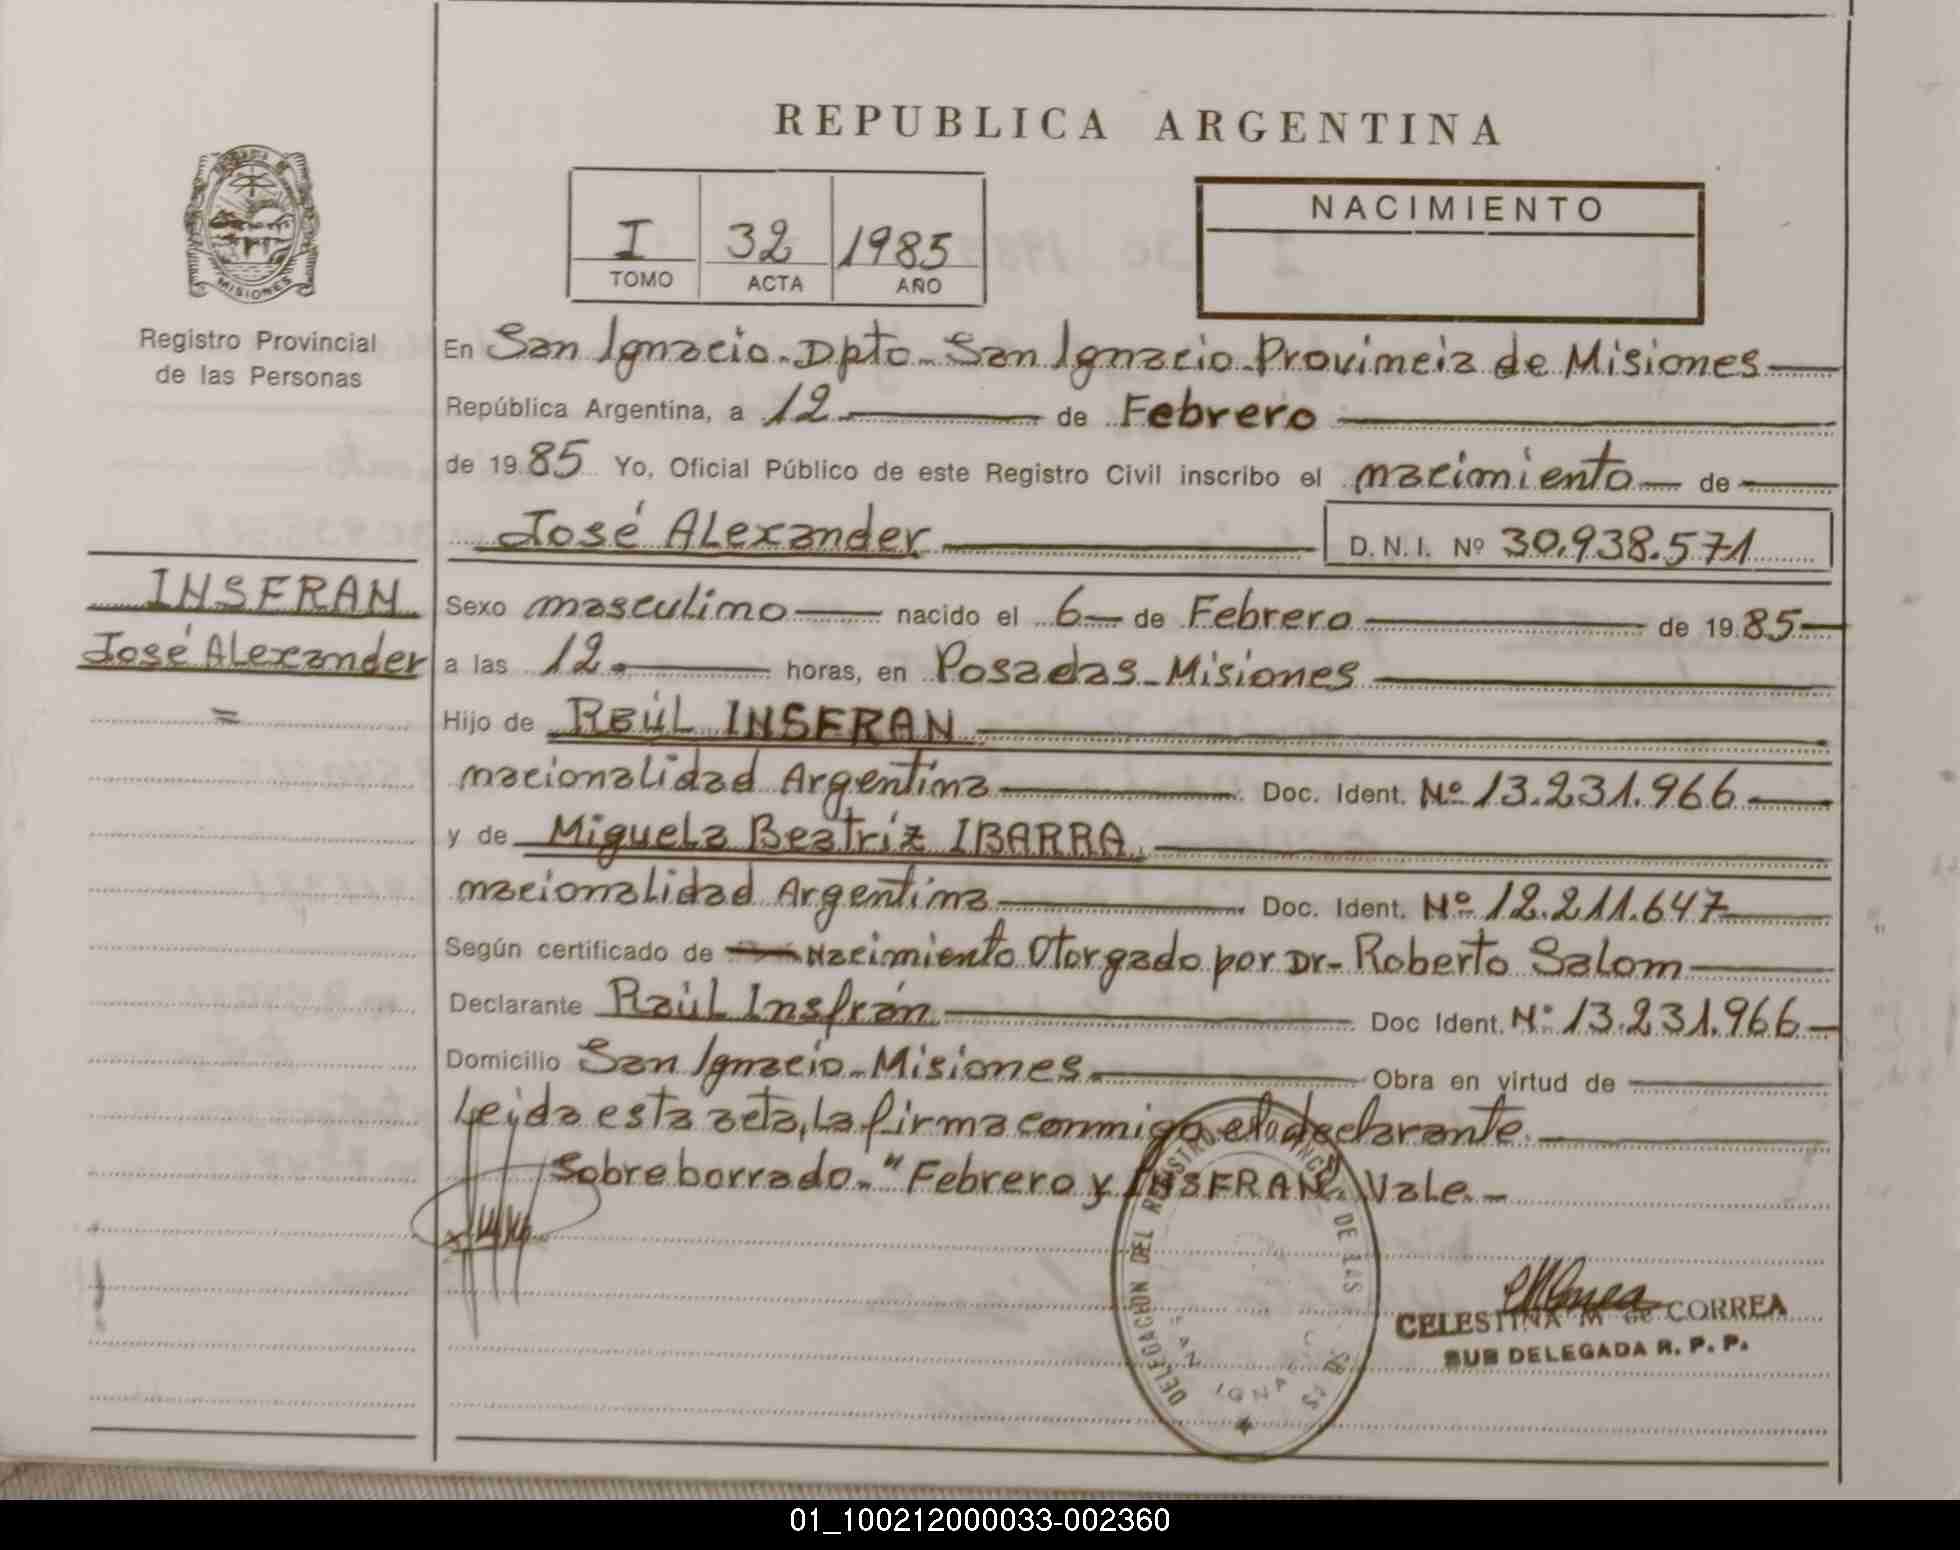 REPUBLICA ARGENTINA
I 32 1985
TOMO ACTA AÑO
NACIMIENTO
MISIONES
Registro Provincial
de las Personas
INSFRAN
José Alexander
=
En San Ignacio - Dpto - San Ignacio - Provincia de Misiones
República Argentina, a 12 de Febrero
de 1985 Yo, Oficial Público de este Registro Civil inscribo el nacimiento de
José Alexander D.N.I. Nº 30.938.571
Sexo masculino nacido el 6 de Febrero de 1985
a las 12 horas, en Posadas - Misiones
Hijo de RAÚL INSFRAN
nacionalidad Argentina Doc. Ident. Nº 13.231.966
y de Miguela Beatríz IBARRA
nacionalidad Argentina Doc. Ident. Nº 12.211.647
Según certificado de Nacimiento Otorgado por Dr - Roberto Salom
Declarante Raúl Insfrán Doc Ident. Nº 13.231.966
Domicilio San Ignacio - Misiones Obra en virtud de
Leida esta acta, la firma conmigo el declarante.
Sobre borrado - "Febrero y INSFRAN" Vale. -
DELEGACION DEL REGISTRO DE LAS
SAN IGNACIO
CELESTINA M de CORREA
SUB DELEGADA R. P. P.
01_100212000033-002360